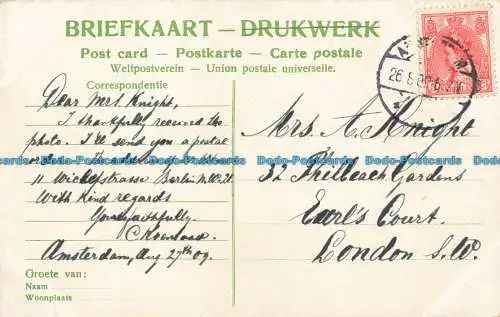 BRIEFKAART – DRUKWERK
Post card – Postkarte – Carte postale
Weltpostverein – Union postale universelle.
Correspondentie
Dear Mrs Knight,
I thankfully received the
photo. I'll send you a postal
11 Berlin N.W.
With kind regards
Yours faithfully,
Amsterdam, Aug 27th 09.
Groete van:
Naam
Woonplaats
26.8.09
Mrs. A. Knight
32 Philbeach Gardens
Earl's Court.
London S.W.
Dodo-Postcards Dodo-Postcards Dodo-Postcards Dodo-Postcards Dodo-Postcards